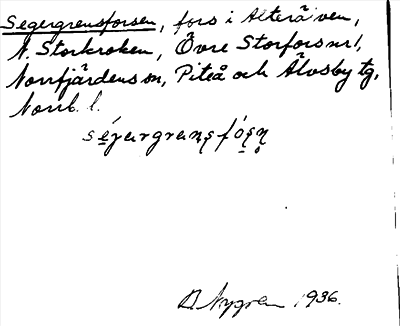 Segergrensforsen, fors i Alterälven,
N. Storkroken, Övre Storfors nr 1,
Norrfjärdens sn, Piteå och Älvsby tg,
Norrb. l.
B. Nygren 1936.